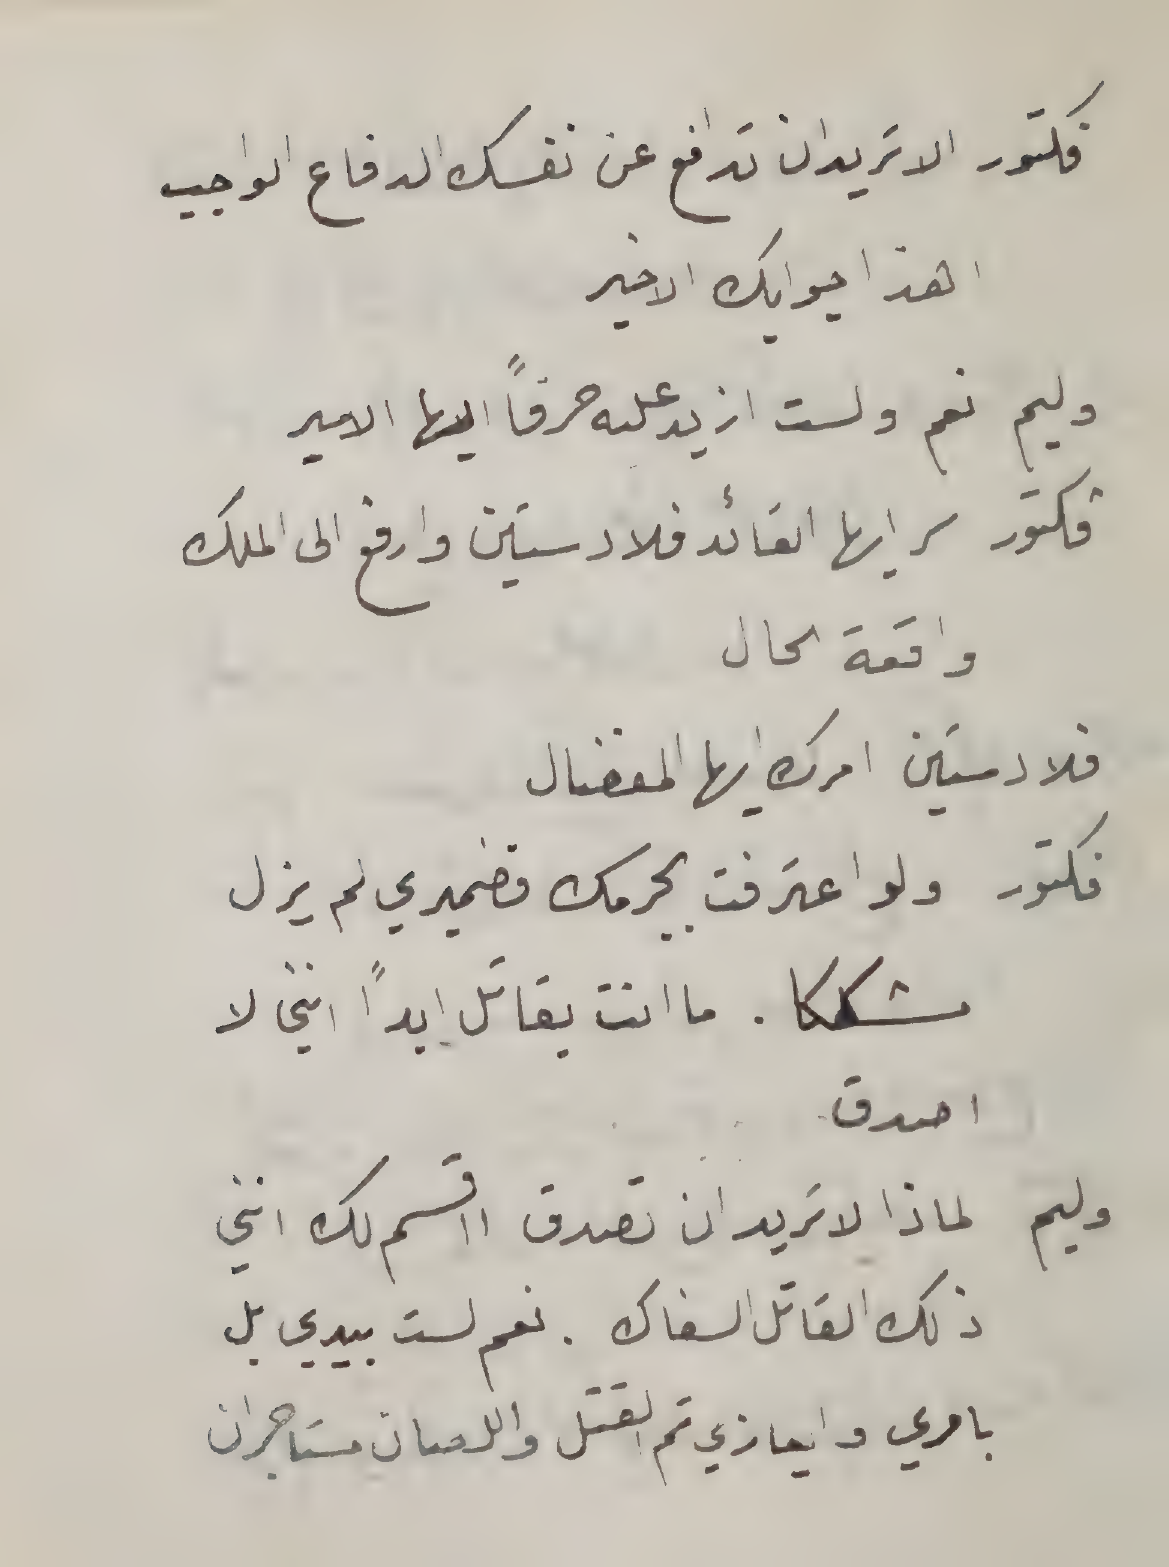 فكتور الا تريد ان تدافع عن نفسك الدفاع الواجب
اهذا جوابك الاخير
وليم نعم ولست ازيد عليه حرفاً ايها الامير
فكتور سر ايها القائد فلادستين وارفع الى الملك
واقعة الحال
فلادستين امرك ايها المفضال
فكتور ولو اعترفت بجرمك فضميري لم يزل
مشككا . ما انت بقاتل ابداً انني لا
اصدق
وليم لماذا لا تريد ان تصدق ااقسم لك انني
ذلك القاتل السفاك . نعم لست بيدي بل
بامري وايعازي تم القتل واللصان مستاجران